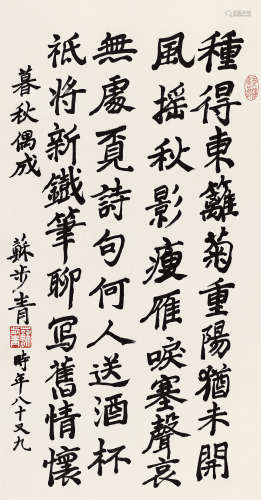 種得東籬菊重陽猶未開
風摇秋影瘦雁唳塞聲哀
無處覓詩句何人送酒杯
祗將新鐵筆聊寫舊情懷
暮秋偶成
蘇步青
時年八十又九